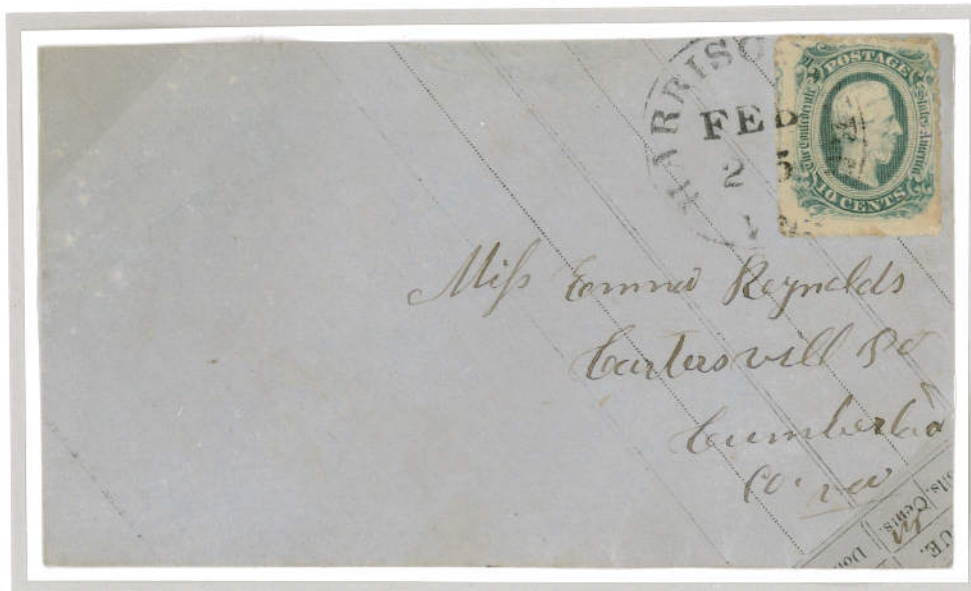 HARRISO
FEB
25
POSTAGE
The Confederate States America
10 CENTS
Miſs Emma Reynolds
Cartersvill PO
Cumberland
Co. va
Cents.
UE.
Dol